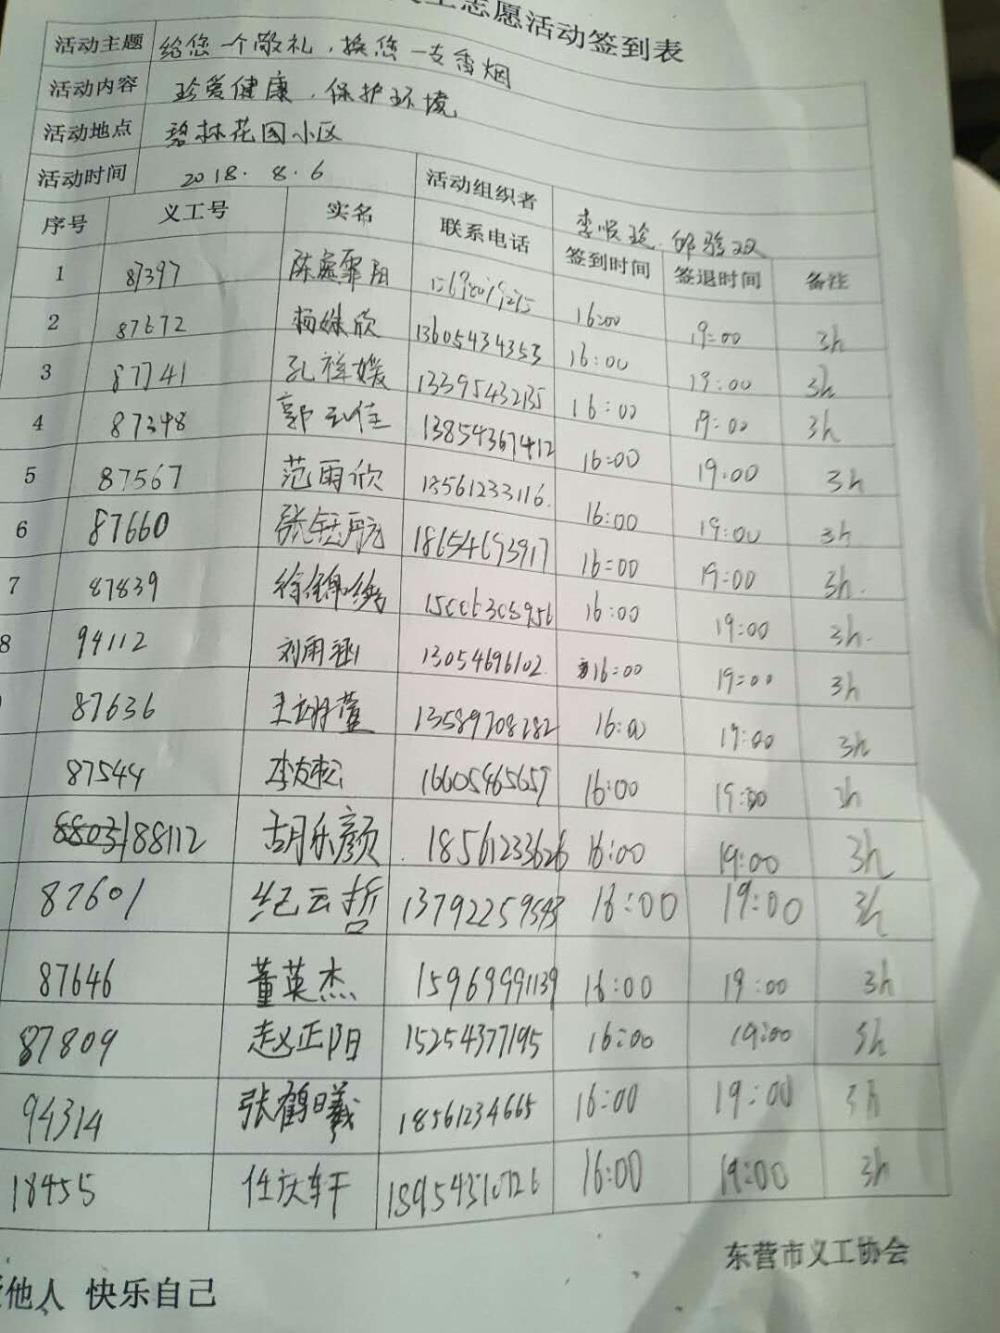 志愿活动签到表
活动主题 给您一个敬礼,换您一支香烟
活动内容 珍爱健康,保护环境
活动地点 碧林花园小区
活动时间 2018.8.6 活动组织者
序号 义工号 实名 联系电话 签到时间 签退时间 备注
1 87397 16:00 19:00 3h
2 87672 13605434353 16:00 19:00 3h
3 87741 孔祥媛 13395432135 16:00 19:00 3h
4 87398 13854367412 16:00 19:00 3h
5 87567 范雨欣 18561233116 16:00 19:00 3h
6 87660 18654693917 16:00 19:00 3h.
7 87839 16:00 19:00 3h.
8 94112 刘雨涵 13054696102 16:00 19:00 3h
87636 13589708282 16:00 19:00 3h
87544 李友松 16605465657 16:00 19:00 3h
88112 胡乐颜 18561233626 16:00 19:00 3h
87601 纪云哲 13792259543 16:00 19:00 3h
87646 董英杰 15969991139 16:00 19:00 3h
87809 赵正阳 15254377195 16:00 19:00 3h
94314 张鹤曦 18561234665 16:00 19:00 3h
18455 任庆轩 16:00 19:00 3h
东营市义工协会
他人 快乐自己